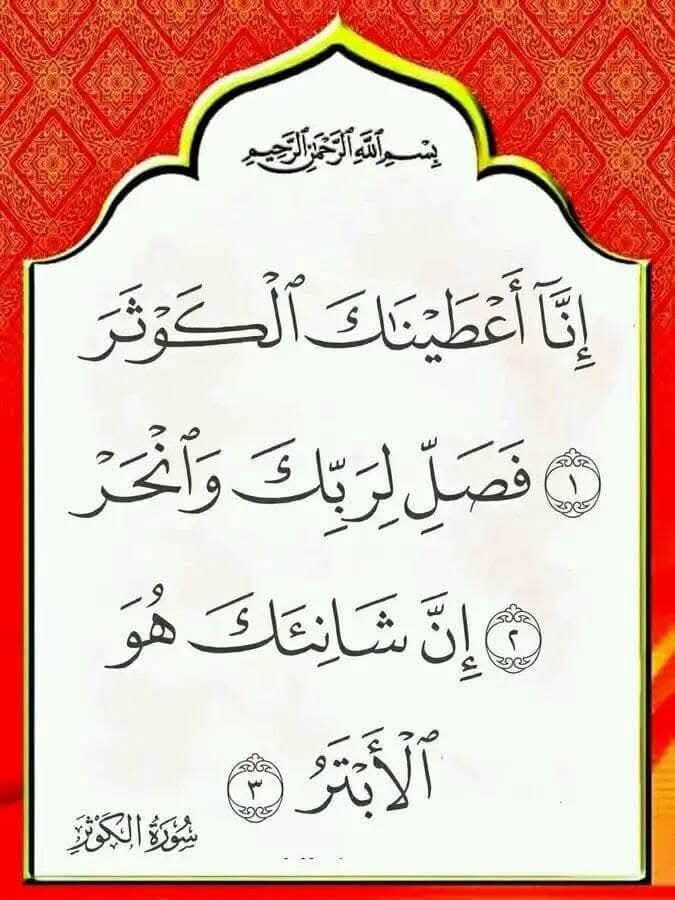 بِسْمِ ٱللَّهِ ٱلرَّحْمَٰنِ ٱلرَّحِيمِ
إِنَّآ أَعْطَيْنَٰكَ ٱلْكَوْثَرَ
١ فَصَلِّ لِرَبِّكَ وَٱنْحَرْ
٢ إِنَّ شَانِئَكَ هُوَ
ٱلْأَبْتَرُ ٣
سُورَةُ الكَوْثَرِ